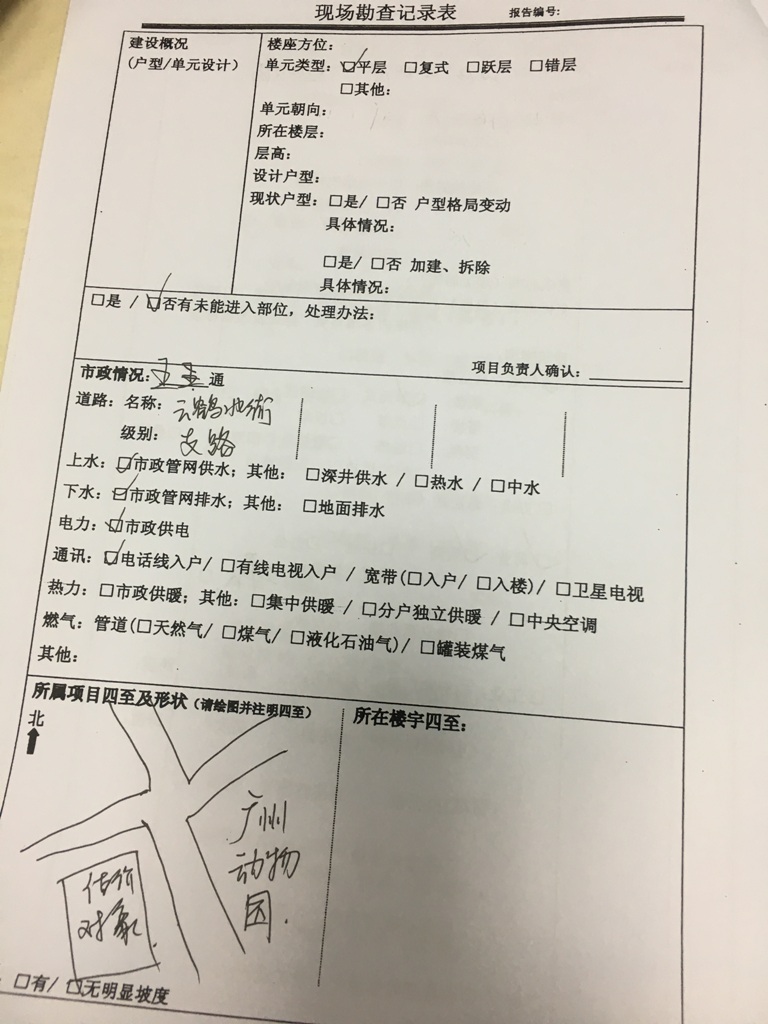 现场勘查记录表
报告编号:
建设概况
(户型/单元设计)
楼座方位:
单元类型: ☑平层 □复式 □跃层 □错层
□其他:
单元朝向:
所在楼层:
层高:
设计户型:
现状户型: □是/ □否 户型格局变动
具体情况:
□是/ □否 加建、拆除
具体情况:
□是 / ☑否有未能进入部位, 处理办法:
项目负责人确认:
市政情况: 通
道路: 名称: 云鹤北街
级别: 支路
上水: ☑市政管网供水; 其他: □深井供水 / □热水 / □中水
下水: ☑市政管网排水; 其他: □地面排水
电力: ☑市政供电
通讯: ☑电话线入户/ □有线电视入户 / 宽带(□入户/ □入楼)/ □卫星电视
热力: □市政供暖; 其他: □集中供暖 / □分户独立供暖 / □中央空调
燃气: 管道(□天然气/ □煤气/ □液化石油气)/ □罐装煤气
其他:
所属项目四至及形状 (请绘图并注明四至)
所在楼宇四至:
北
广州
动物
园.
估价
对象
□有/ ☑无明显坡度